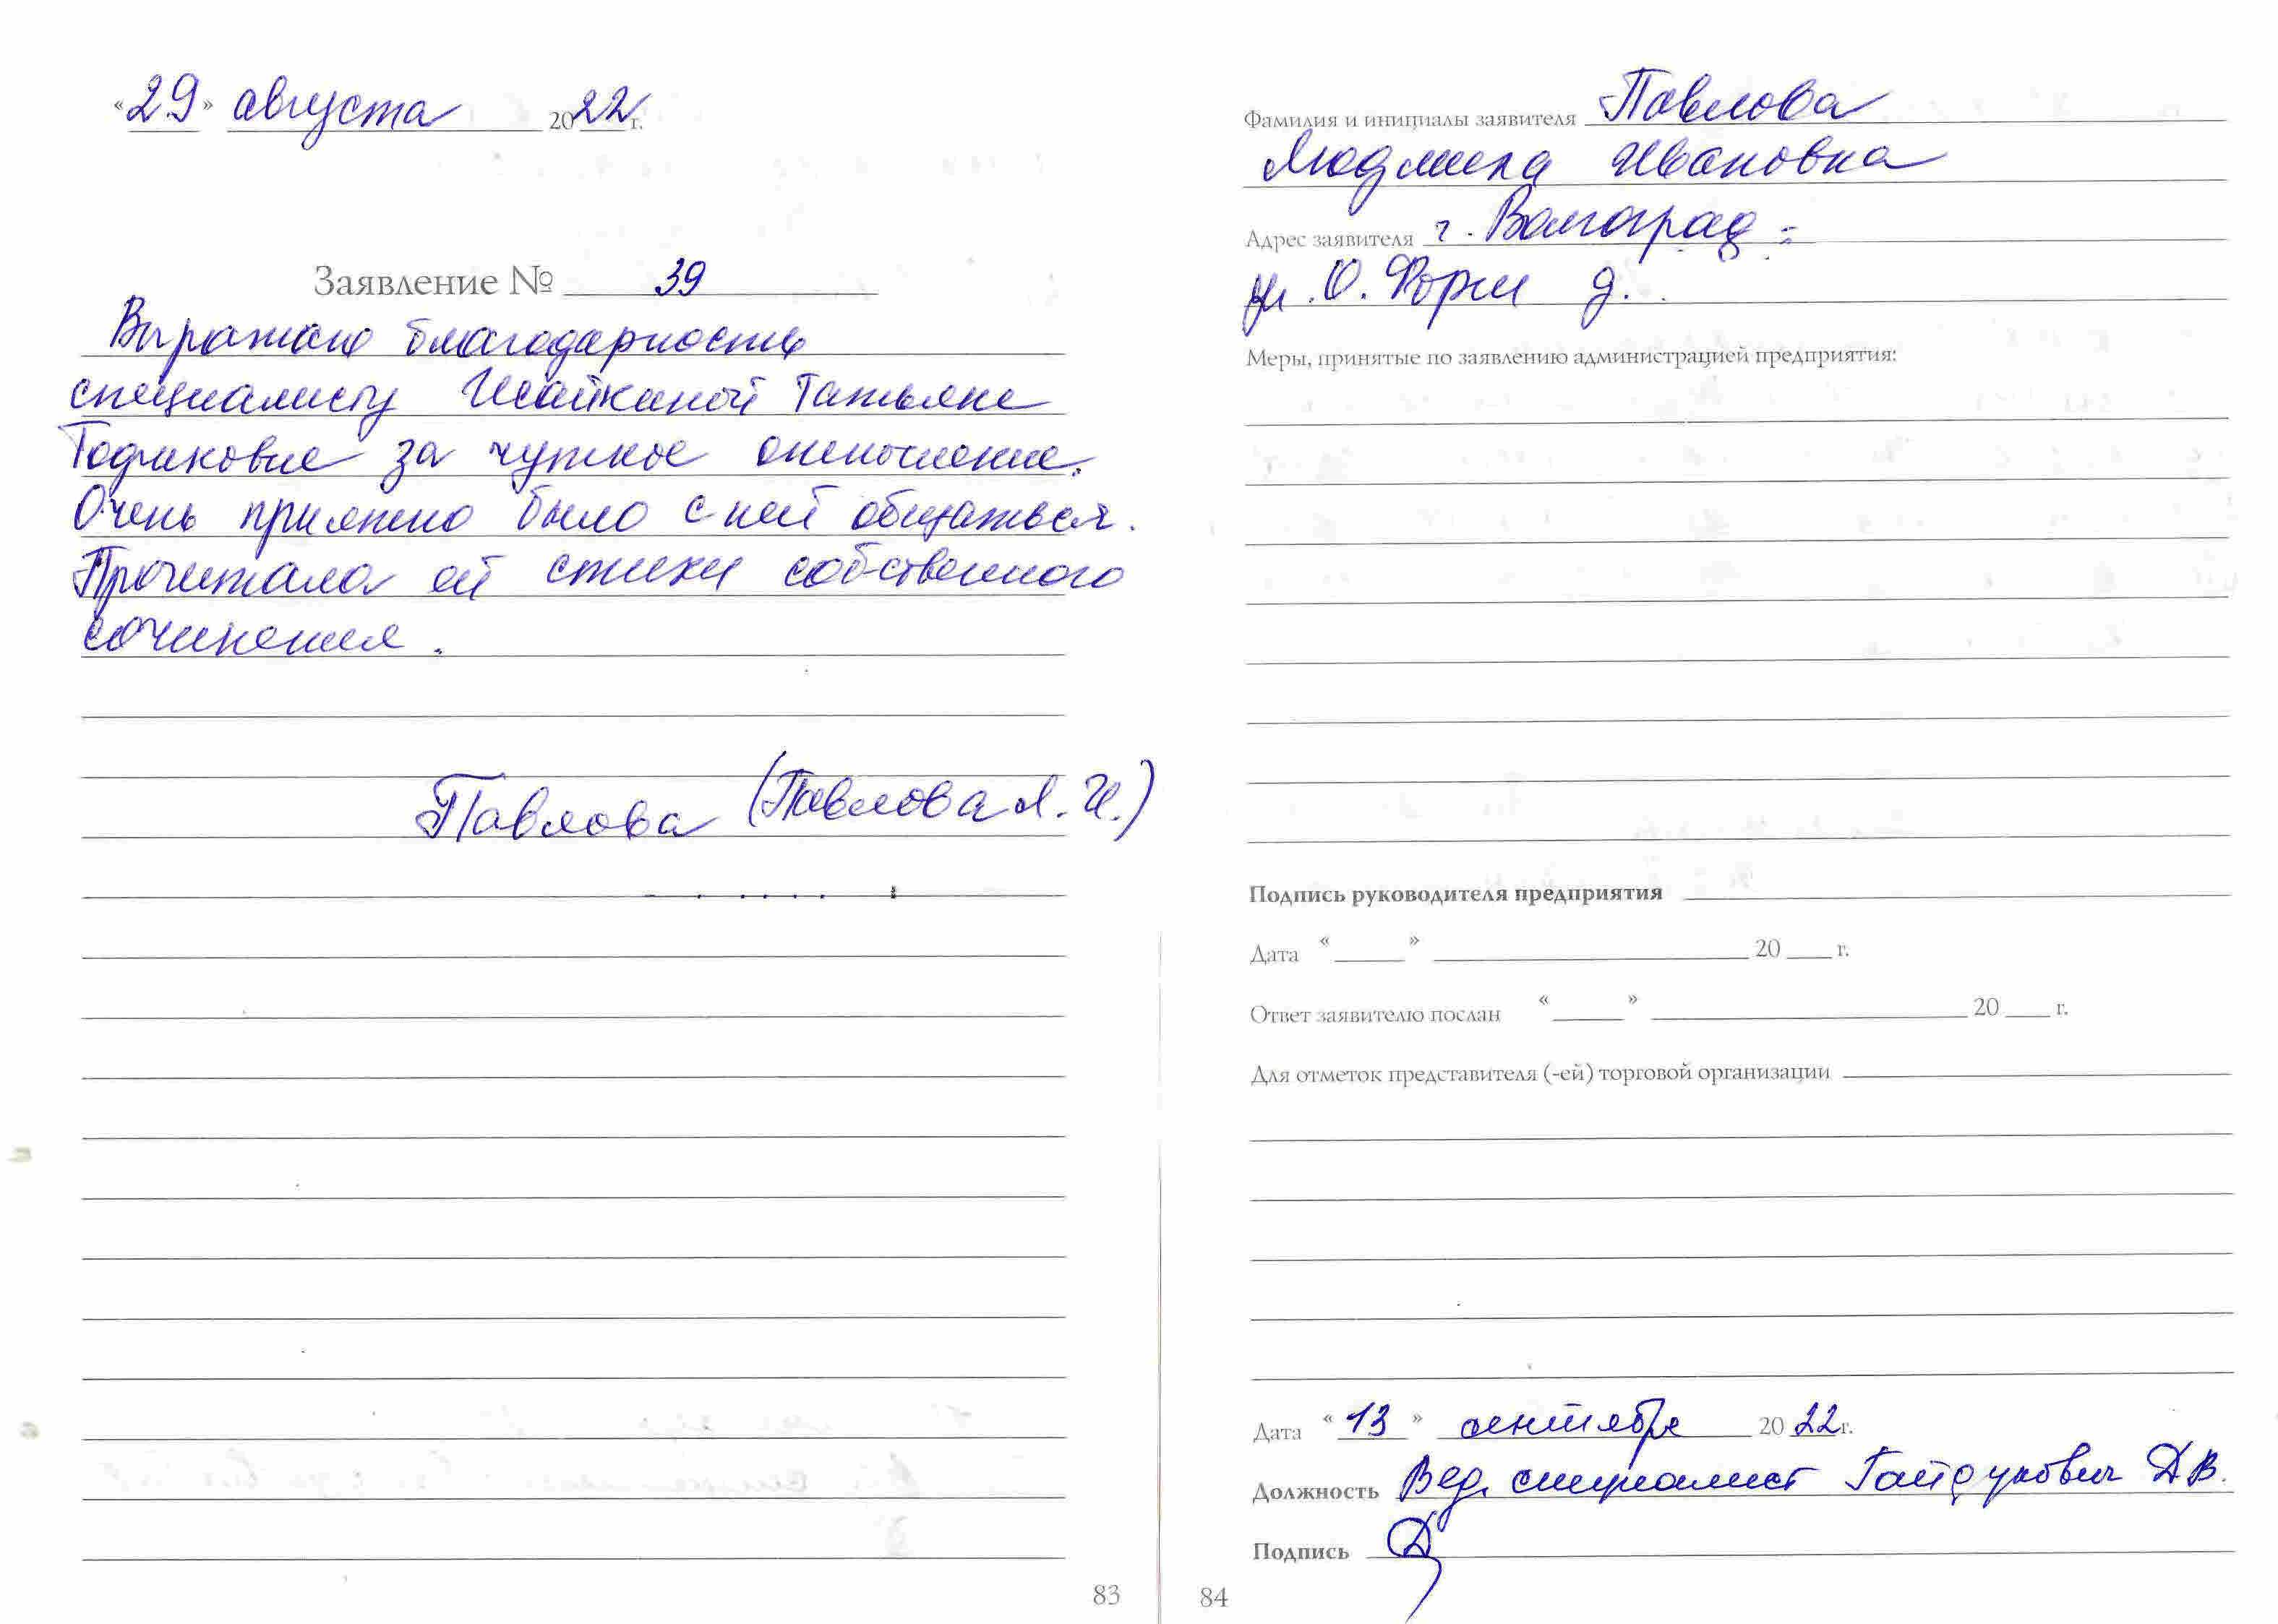 «29» августа 2022 г.
Заявление № 39
Выражаю благодарность
специалисту Исайкиной Татьяне
за чуткое отношение.
Очень приятно было с ней общаться.
Прочитала ей стихи собственного
сочинения.
Павлова (Павлова Л. И.)
83
Фамилия и инициалы заявителя Павлова
Людмила Ивановна
Адрес заявителя г. Волгоград -
ул. О. Форш д.
Меры, принятые по заявлению администрацией предприятия:
Подпись руководителя предприятия
Дата « » 20 г.
Ответ заявителю послан « » 20 г.
Для отметок представителя (-ей) торговой организации
Дата «13» сентября 2022 г.
Должность Вед. специалист Гайдукович Д.В.
Подпись
84